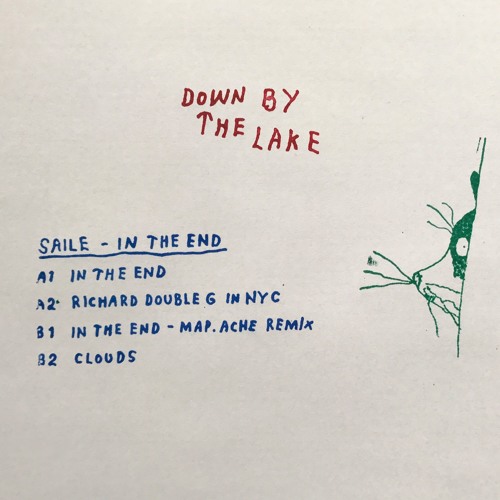 DOWN BY
THE LAKE
SAILE - IN THE END
A1 IN THE END
A2 RICHARD DOUBLE G IN NYC
B1 IN THE END - MAP.ACHE REMIX
B2 CLOUDS